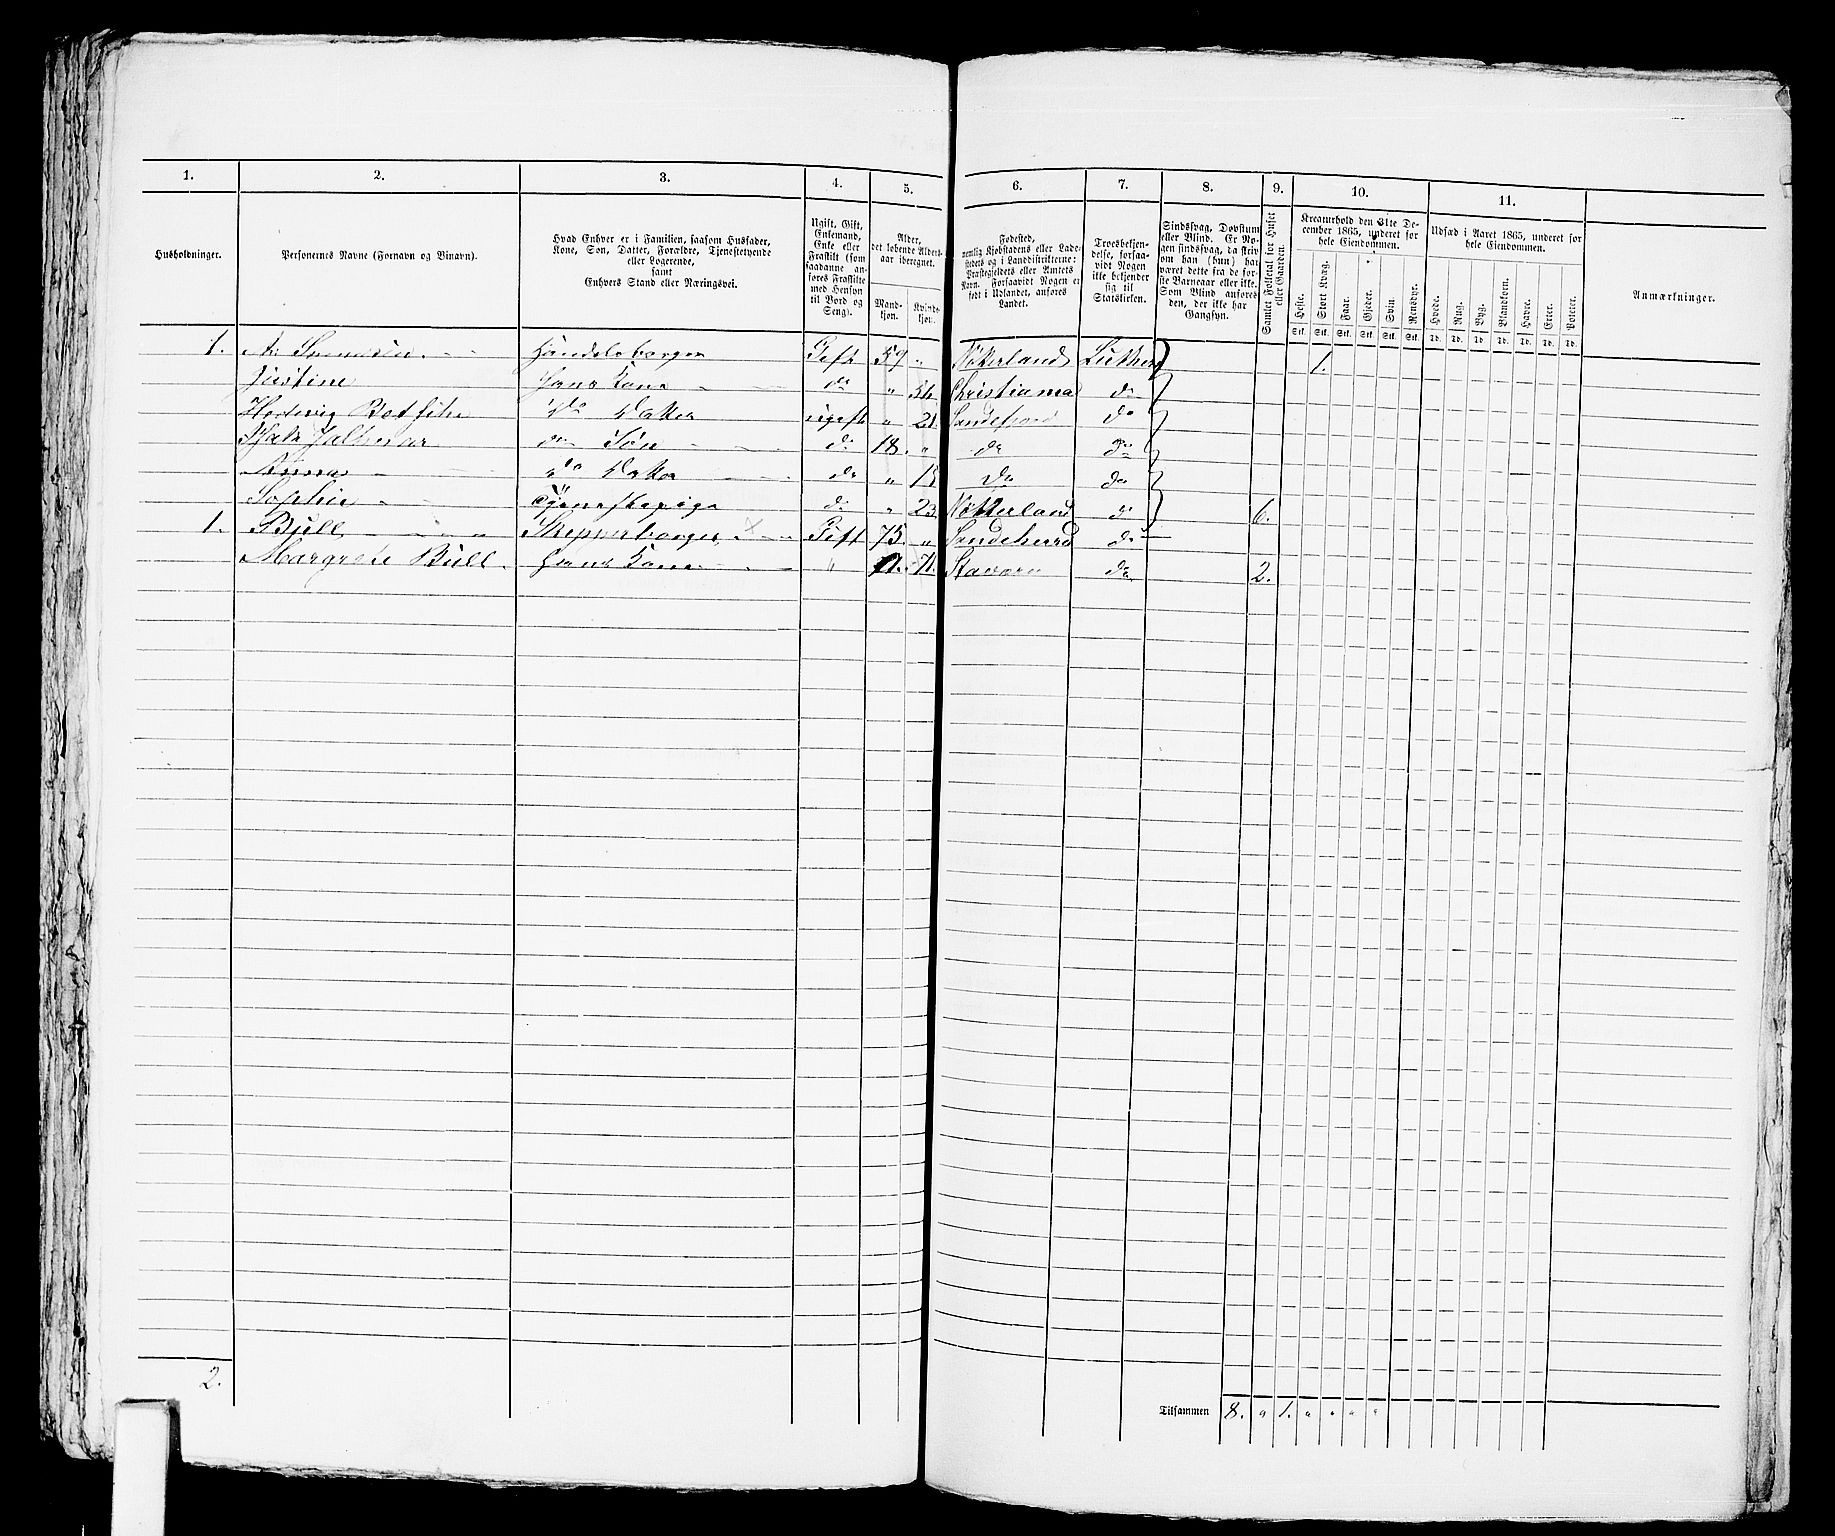 1. 2. 3. 4. 5. 6. 7. 8. 9. 10. 11.
Husholdninger.
Personernes Navne (Fornavn og Binavn).
Hvad Enhver er i Familien, saasom Husfader,
Kone, Søn, Datter, Forældre, Tjenestetyende
eller Logerende,
samt
Enhvers Stand eller Næringsvei.
Ugift, Gift,
Enkemand,
Enke eller
Fraskilt (som
saadanne an-
føres Fraskilte
med Hensyn
til Bord og
Seng).
Alder,
det løbende Alders-
aar iberegnet.
Mand-
kjøn.
Kvinde-
kjøn.
Fødested,
nemlig Kjøbstadens eller Lade-
stedets og i Landdistrikterne:
Præstegjeldets eller Amtets
Navn. Forsaavidt Nogen er
født i Udlandet, anføres
Landet.
Troesbekjen-
delse, forsaa-
vidt Nogen
ikke bekjender
sig til
Statskirken.
Sindssvag, Døvstum
eller Blind. Er No-
gen sindssvag, da skriv
om han (hun) har
været dette fra de før-
ste Barneaar eller ikke.
Som Blind anføres
den, der ikke har
Gangsyn.
Samlet Folketal for Huset
eller Gaarden.
Kreaturhold den 31te De-
cember 1865, underet for
hele Eiendommen.
Heste. Stort Kvæg. Faar. Gjeder. Svin. Rensdyr.
Stk. Stk. Stk. Stk. Stk. Stk.
Udsæd i Aaret 1865, underet for
hele Eiendommen.
Hvede. Rug. Byg. Blandkorn. Havre. Erter. Poteter.
Td. Td. Td. Td. Td. Td. Td.
Anmærkninger.
1. Handelsborger Gift 59 " Luthersk 1.
Justine Hans Kone do " 54 Christiania do
do Datter ugift " 21 Sandefjord do
do Søn do 18. " do do
Anna do Datter do " do do
Sophie Tjenestepige do " 23 Nøtterland do 6.
1. Bull " Skipperborger Gift 75. " Sandeherred do
Margrete Bull Hans Kone " 71. Stavern do 2.
2.
Tilsammen 8. " 1. " " " "